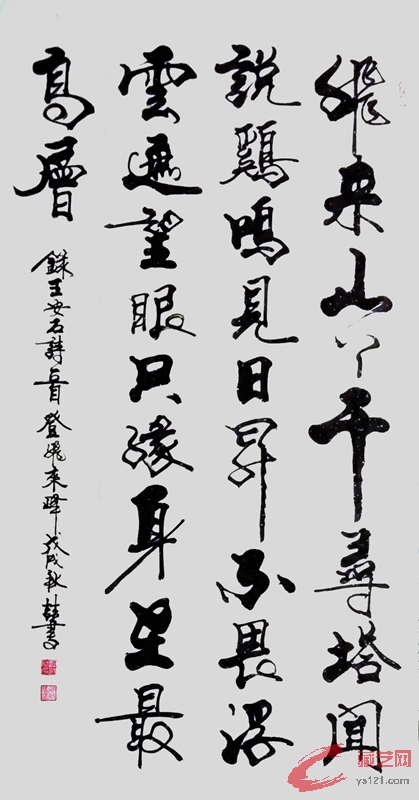 飛来山上千尋塔聞
說鷄鳴見日昇不畏浮
雲遮望眼只緣身在最
高層
錄王安石詩壹首登飛来峰戊戌秋書
藏艺网
ys121.com